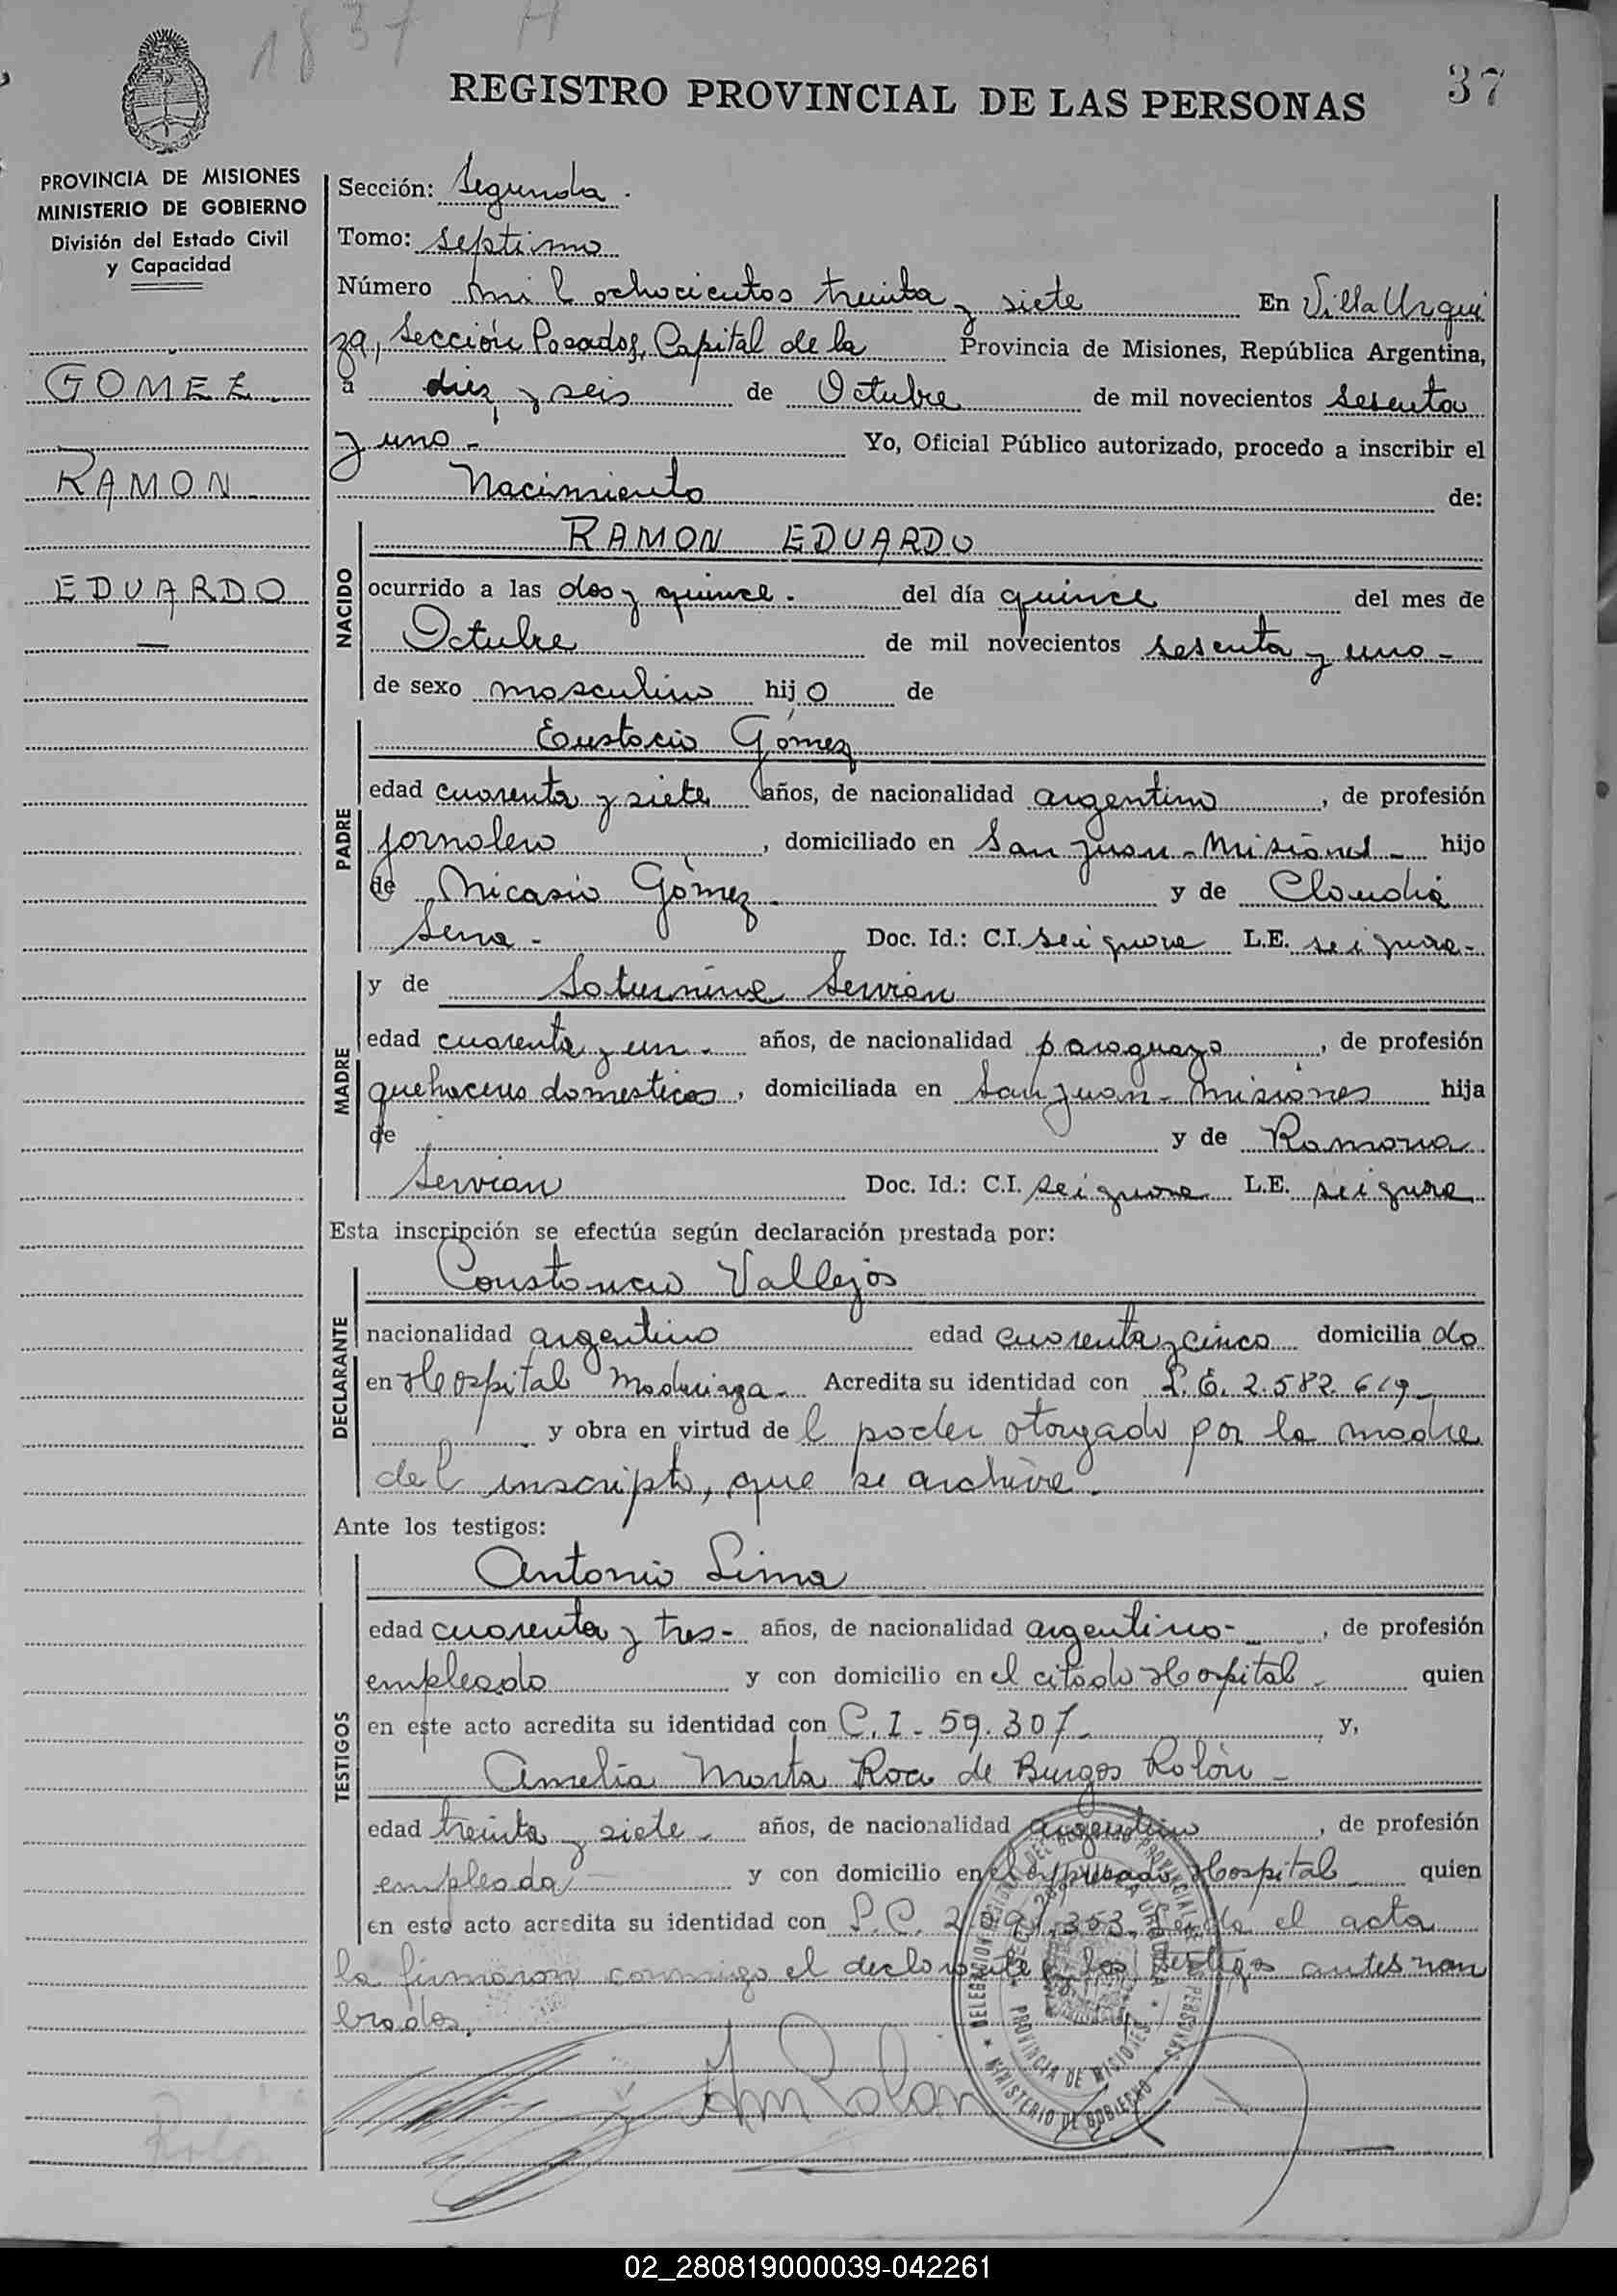 1837 A
37
REGISTRO PROVINCIAL DE LAS PERSONAS
PROVINCIA DE MISIONES
MINISTERIO DE GOBIERNO
División del Estado Civil
y Capacidad
GOMEZ.
RAMON
EDUARDO
Sección: Segunda.
Tomo: septimo
Número mil ochocientos treinta y siete En Villa Urqui
za, Sección Posadas, Capital de la Provincia de Misiones, República Argentina,
a diez y seis de Octubre de mil novecientos sesenta
y uno- Yo, Oficial Público autorizado, procedo a inscribir el
Nacimiento de:
NACIDO
RAMON EDUARDO
ocurrido a las dos y quince. del día quince del mes de
Octubre de mil novecientos sesenta y uno-
de sexo masculino hijo de
PADRE
Eustacio Gómez
edad cuarenta y siete años, de nacionalidad argentino, de profesión
jornalero, domiciliado en San Juan-Misiones- hijo
de Nicasio Gómez. y de Claudia
Sena- Doc. Id.: C.I. se ignora L.E. se ignora-
MADRE
y de Saturnina Servian
edad cuarenta y un. años, de nacionalidad paraguaya, de profesión
quehaceres domesticos, domiciliada en San Juan-Misiones hija
de y de Ramona
Servian Doc. Id.: C.I. se ignora L.E. se ignora
Esta inscripción se efectúa según declaración prestada por:
DECLARANTE
Constancio Vallejos
nacionalidad argentino edad cuarenta y cinco domiciliado
en Hospital Madariaga- Acredita su identidad con L.E. 2.582.619-
y obra en virtud del poder otorgado por la madre
del inscripto, que se archiva.
Ante los testigos:
TESTIGOS
Antonio Lima
edad cuarenta y tres- años, de nacionalidad argentino-, de profesión
empleado y con domicilio en el citado Hospital- quien
en este acto acredita su identidad con C.I-59.307- y,
Amelia Marta Roa de Burgos Rolón-
edad treinta y siete- años, de nacionalidad argentina, de profesión
empleada y con domicilio en el expresado Hospital quien
en este acto acredita su identidad con L.C. Leída el acta
la firmaron conmigo el declarante y los testigos antes nom
brados.
AmRolon
DELEGACION REGISTRO PROVINCIAL DE LAS PERSONAS
PROVINCIA DE MISIONES
MINISTERIO DE GOBIERNO
02_280819000039-042261